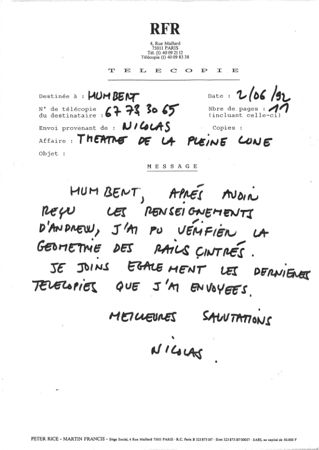 RFR
4, Rue Maillard
75011 PARIS
Tél. (1) 40 09 21 12
Télécopie (1) 40 09 83 38
TELECOPIE
Destinée à : HUMBERT Date : 2/06/92
N° de télécopie du destinataire : 67 73 30 65 Nbre de pages : 11 (incluant celle-ci)
Envoi provenant de : NICOLAS Copies :
Affaire : THEATRE DE LA PLEINE LUNE
Objet :
MESSAGE
HUMBERT, APRÉS AVOIR
REÇU LES RENSEIGNEMENTS
D'ANDREW, J'AI PU VÉRIFIER LA
GEOMETRIE DES RAILS CINTRÉS.
JE JOINS EGALEMENT LES DERNIÈRES
TELECOPIES QUE J'AI ENVOYEES.
MEILLEURES SALUTATIONS
NICOLAS.
PETER RICE - MARTIN FRANCIS - Siège Social, 4 Rue Maillard 75011 PARIS